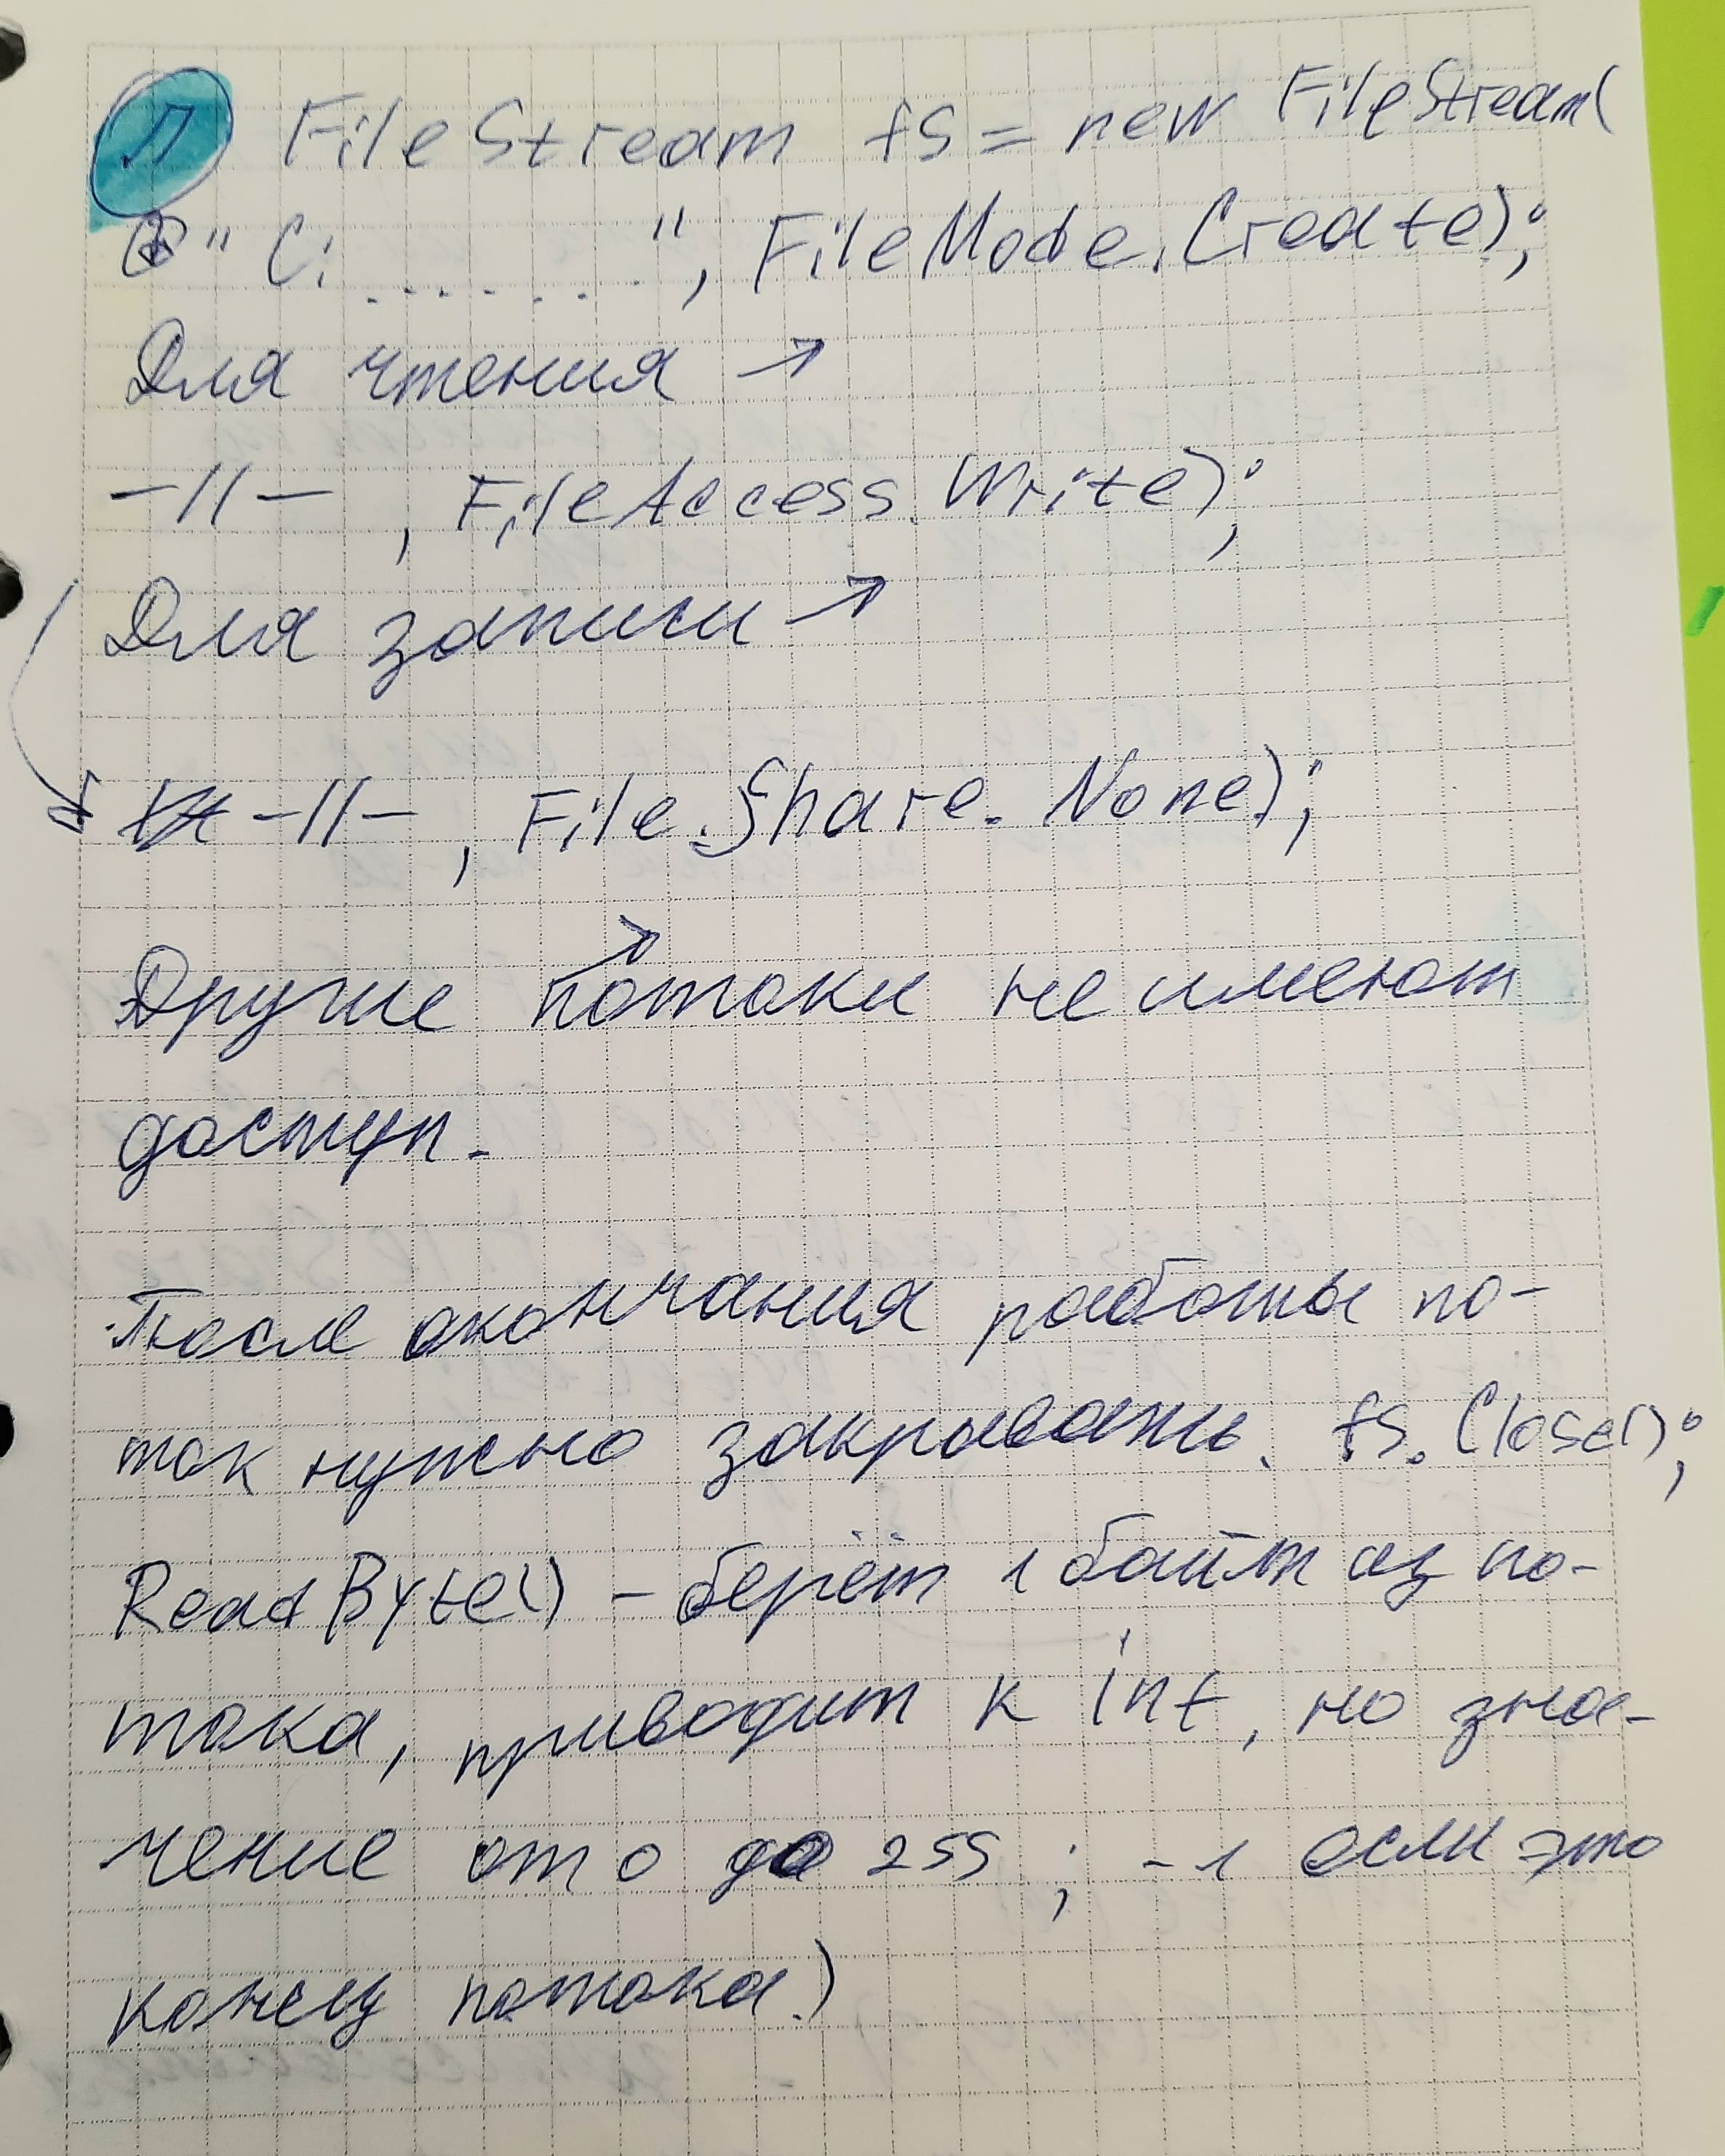 П FileStream fs = new FileStream(
@" C: . . . . . . . ", FileMode.Create);
Для чтения →
-//- , FileAccess.Write);
Для записи →
-//- , File.Share.None);
Другие потоки не имеют
доступ.
После окончания работы по-
ток нужно закрывать. fs.Close();
ReadByte() - берёт 1 байт из по-
тока, приводит к int, но зна-
чение от 0 до 255 ; -1 если это
конец потока.)